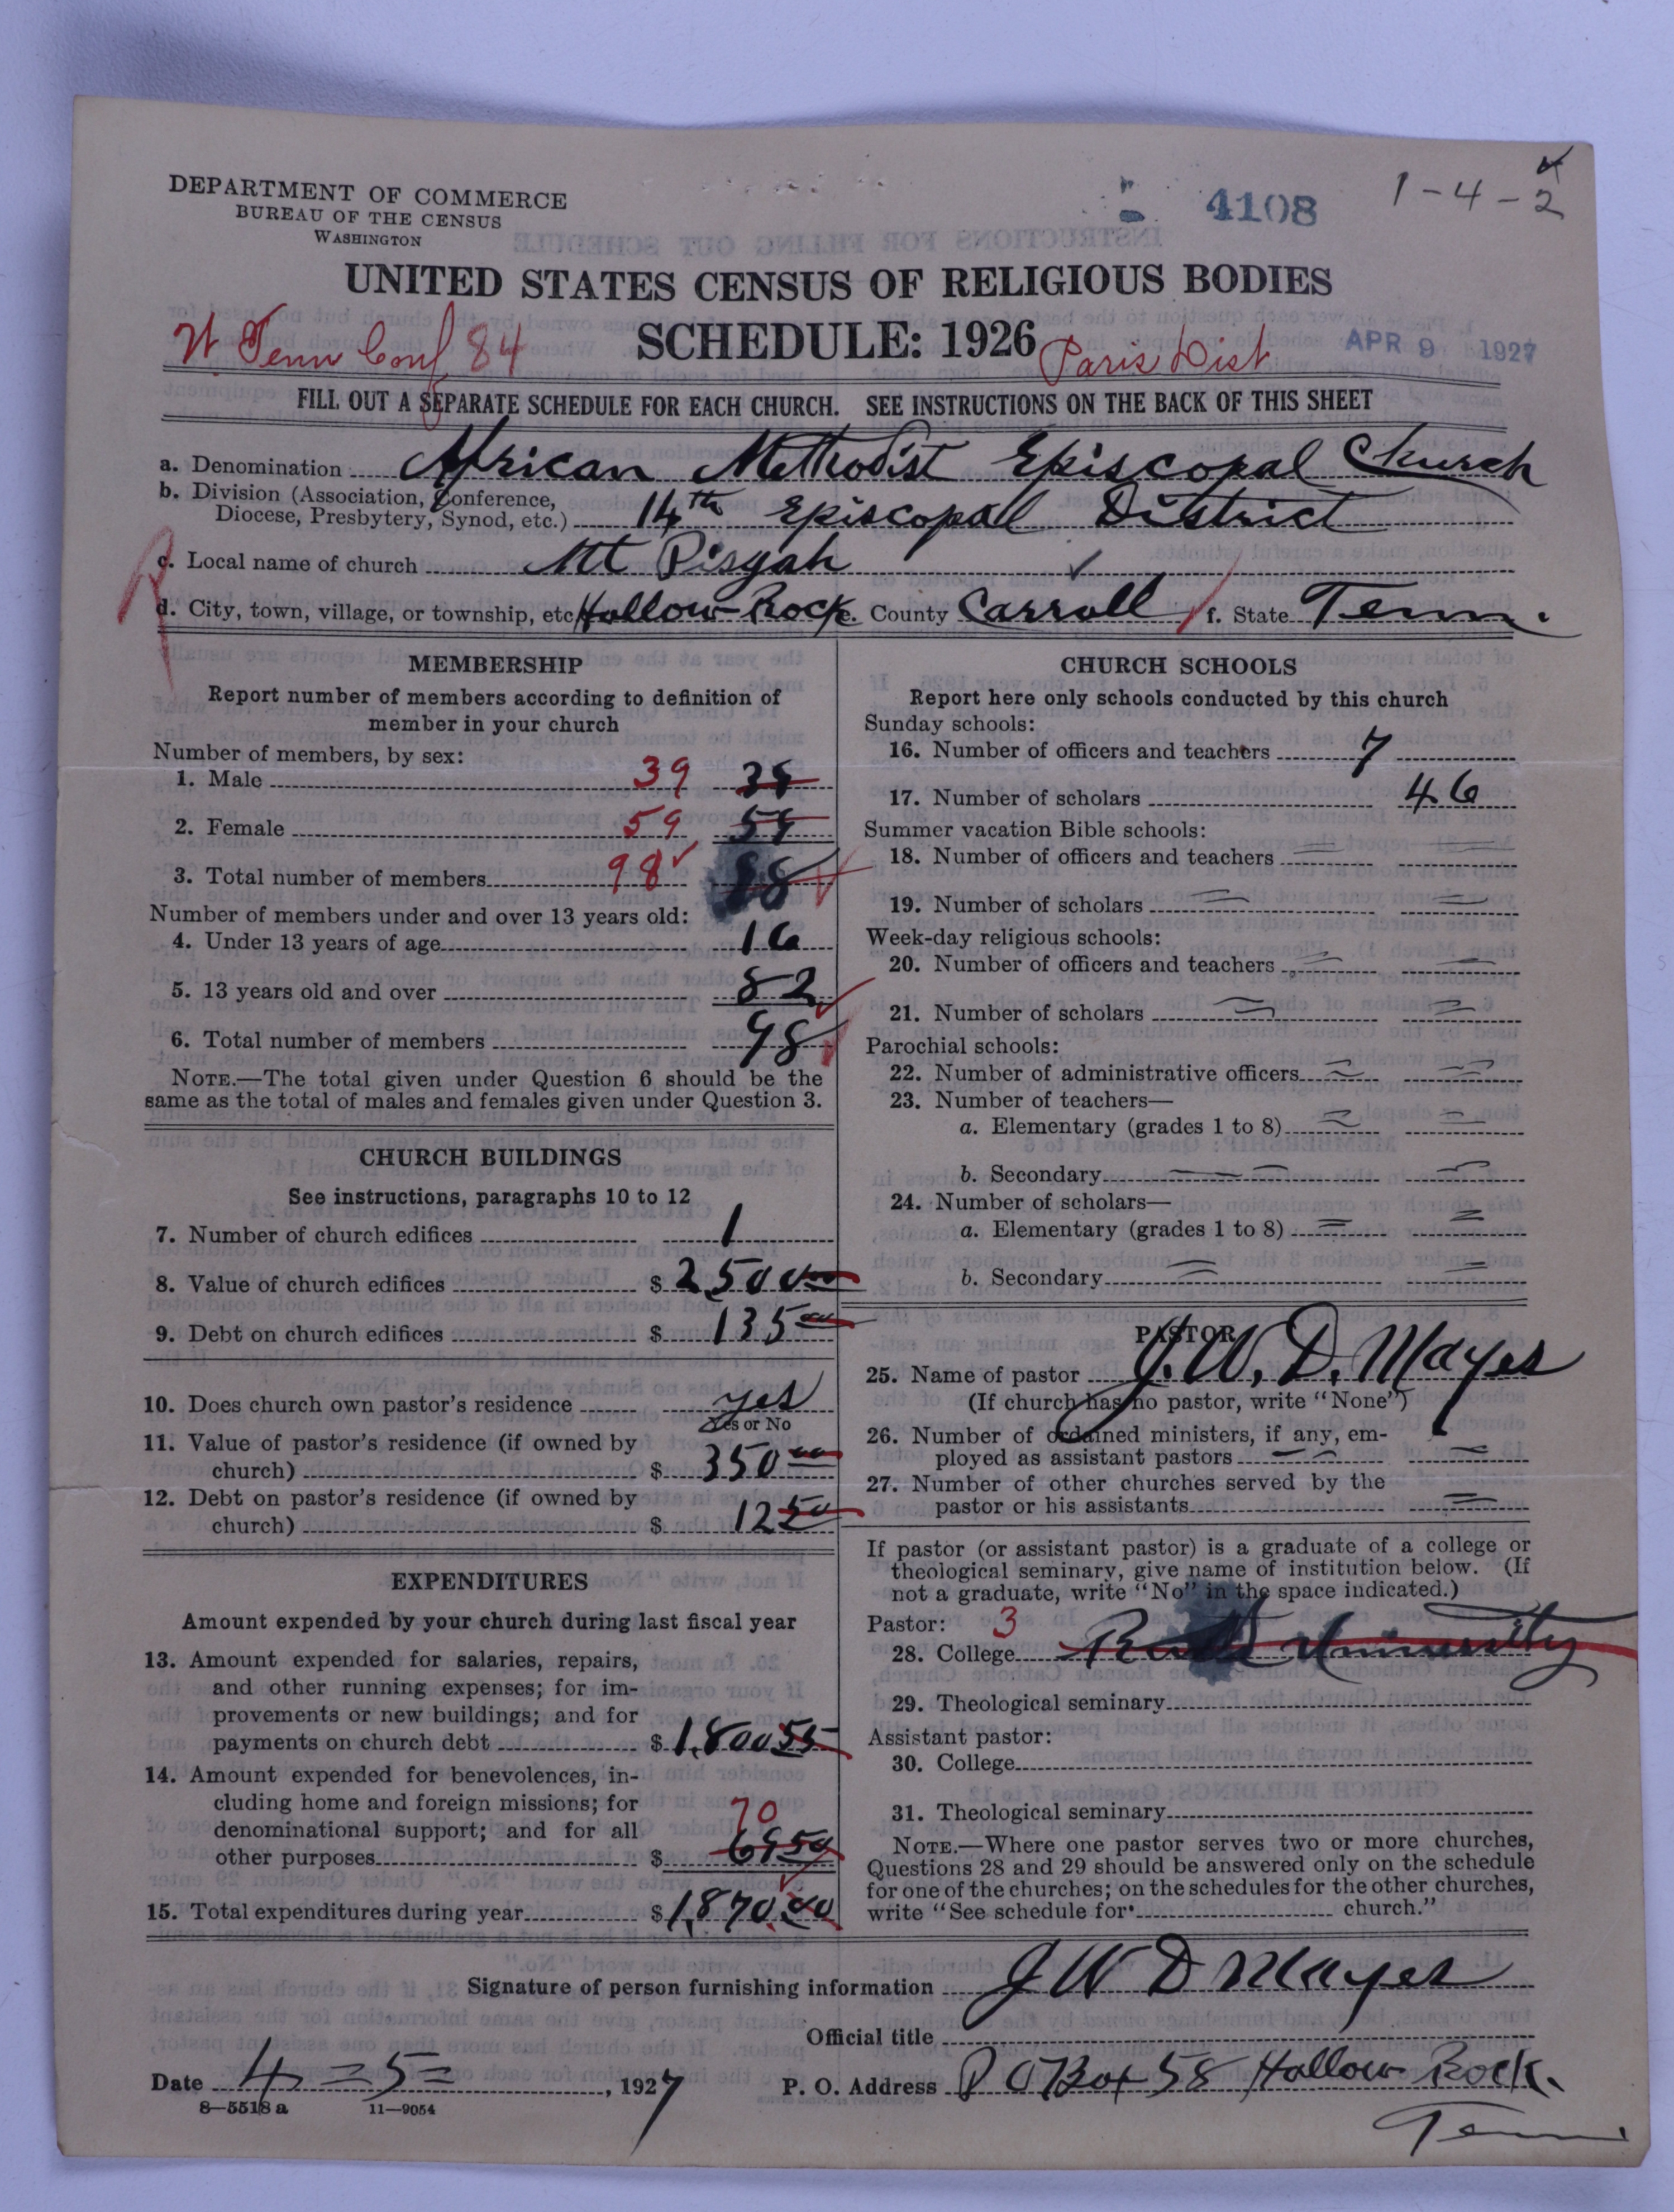 DEPARTMENT OF COMMERCE
BUREAU OF THE CENSUS
WASHINGTON
4108
1-4-2
UNITED STATES CENSUS OF RELIGIOUS BODIES
W. Tenn Conf 84
SCHEDULE: 1926
Paris Dist
APR 9 1927
FILL OUT A SEPARATE SCHEDULE FOR EACH CHURCH. SEE INSTRUCTIONS ON THE BACK OF THIS SHEET
a. Denomination African Methodist Episcopal Church
b. Division (Association, Conference,
Diocese, Presbytery, Synod, etc.) 14th Episcopal District
c. Local name of church Mt Pisgah
d. City, town, village, or township, etc Hollow-Rock e. County Carroll f. State Tenn.
MEMBERSHIP
Report number of members according to definition of
member in your church
Number of members, by sex:
1. Male 39
2. Female 59
3. Total number of members 98 88
Number of members under and over 13 years old:
4. Under 13 years of age 16
5. 13 years old and over 82
6. Total number of members 98
NOTE.—The total given under Question 6 should be the
same as the total of males and females given under Question 3.
CHURCH BUILDINGS
See instructions, paragraphs 10 to 12
7. Number of church edifices 1
8. Value of church edifices $ 2500 00
9. Debt on church edifices $ 135 00
10. Does church own pastor's residence yes
Yes or No
11. Value of pastor's residence (if owned by
church) $ 350 00
12. Debt on pastor's residence (if owned by
church) $ 12 50
EXPENDITURES
Amount expended by your church during last fiscal year
13. Amount expended for salaries, repairs,
and other running expenses; for im-
provements or new buildings; and for
payments on church debt $ 1,800 55
14. Amount expended for benevolences, in-
cluding home and foreign missions; for
denominational support; and for all
70
other purposes $ 69 50
15. Total expenditures during year $ 1,870.00
CHURCH SCHOOLS
Report here only schools conducted by this church
Sunday schools:
16. Number of officers and teachers 7
17. Number of scholars 46
Summer vacation Bible schools:
18. Number of officers and teachers
19. Number of scholars
Week-day religious schools:
20. Number of officers and teachers
21. Number of scholars
Parochial schools:
22. Number of administrative officers
23. Number of teachers—
a. Elementary (grades 1 to 8)
b. Secondary
24. Number of scholars—
a. Elementary (grades 1 to 8)
b. Secondary
PASTOR
25. Name of pastor J. W. D. Mayes
(If church has no pastor, write "None")
26. Number of ordained ministers, if any, em-
ployed as assistant pastors
27. Number of other churches served by the
pastor or his assistants
If pastor (or assistant pastor) is a graduate of a college or
theological seminary, give name of institution below. (If
not a graduate, write "No" in the space indicated.)
Pastor: 3
28. College University
29. Theological seminary
Assistant pastor:
30. College
31. Theological seminary
NOTE.—Where one pastor serves two or more churches,
Questions 28 and 29 should be answered only on the schedule
for one of the churches; on the schedules for the other churches,
write "See schedule for church."
Signature of person furnishing information J W D Mayes
Official title
Date 4=5=, 1927
P. O. Address P O Box 58 Hollow Rock.
Tenn
8—5518 a
11—9054